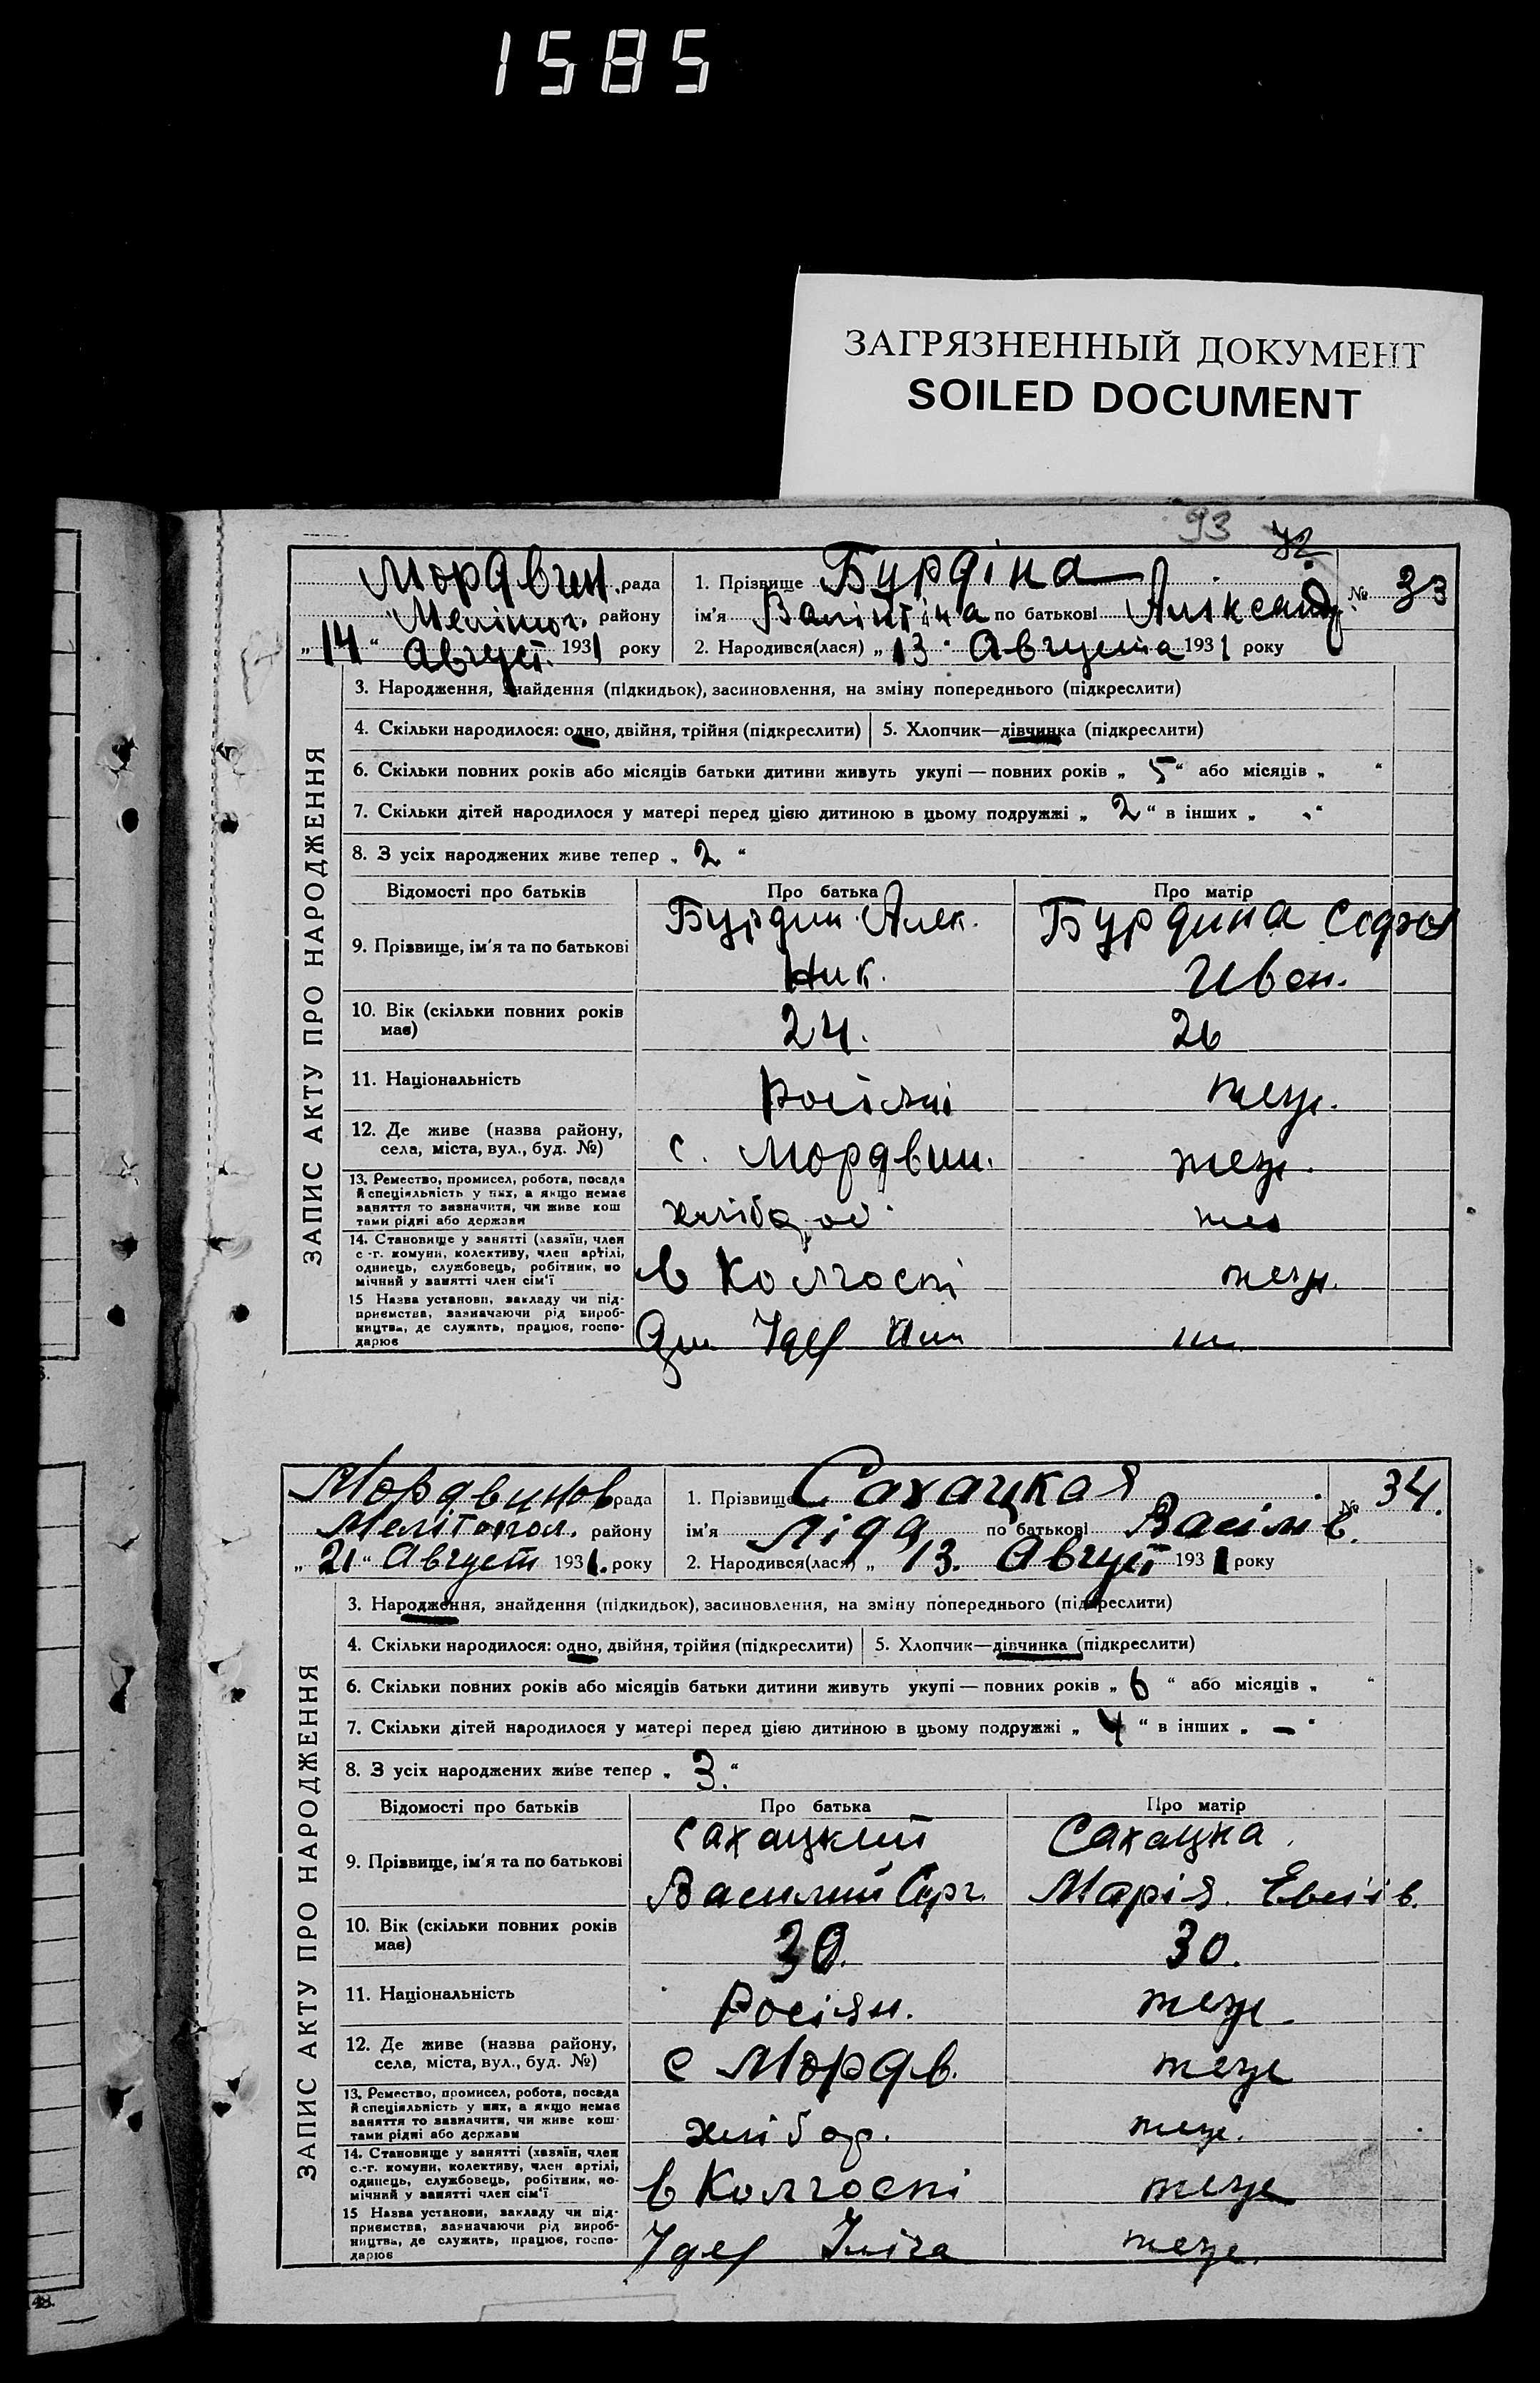 1585
ЗАГРЯЗНЕННЫЙ ДОКУМЕНТ
SOILED DOCUMENT
93
ЗАПИС АКТУ ПРО НАРОДЖЕННЯ
Мордвин. рада
Меліпол. району
„14“ Август. 1931 року
1. Прізвище Бурдіна
№ 33
ім'я Валінтіна по батькові Александр.
2. Народився(лася) „13“ Августа 1931 року
3. Народження, знайдення (підкидьок), засиновлення, на зміну попереднього (підкреслити)
4. Скільки народилося: одно, двійня, трійня (підкреслити) 5. Хлопчик—дівчинка (підкреслити)
6. Скільки повних років або місяців батьки дитини живуть укупі — повних років „ 5 “ або місяців „ “
7. Скільки дітей народилося у матері перед цією дитиною в цьому подружжі „ 2 “ в інших „ “
8. З усіх народжених живе тепер „ 2 “
Відомості про батьків Про батька Про матір
9. Прізвище, ім'я та по батькові
Бурдин Алек.
Ник.
Бурдина Софья
Иван.
10. Вік (скільки повних років
має)
24.
26
11. Національність
Росіяни
теж.
12. Де живе (назва району,
села, міста, вул., буд. №)
с. Мордвин.
теж.
13. Ремество, промисел, робота, посада
й спеціяльність у них, а якщо немає
заняття то зазначити, чи живе кош
тами рідні або держави
хлібор
14. Становище у занятті (хазяїн, член
с.-г. комуни, колективу, член артілі,
одинець, службовець, робітник, по
мічний у занятті член сім'ї
в Колгоспі
теж.
15 Назва установи, закладу чи під-
приємства, зазначаючи рід вироб-
ництва, де служить, працює, госпо-
дарює
ЗАПИС АКТУ ПРО НАРОДЖЕННЯ
Мордвинов рада
Мелітопол. району
„21“ Август 1931. року
1. Прізвище Сахацкая
№ 34.
ім'я Ліда по батькові Васілів.
2. Народився(лася) „13. Август 1931 року
3. Народження, знайдення (підкидьок), засиновлення, на зміну попереднього (підкреслити)
4. Скільки народилося: одно, двійня, трійня (підкреслити) 5. Хлопчик—дівчинка (підкреслити)
6. Скільки повних років або місяців батьки дитини живуть укупі — повних років „ 6 “ або місяців „ “
7. Скільки дітей народилося у матері перед цією дитиною в цьому подружжі „ 4 “ в інших „ — “
8. З усіх народжених живе тепер „ 3. “
Відомості про батьків Про батька Про матір
9. Прізвище, ім'я та по батькові
Сахацкий
Василий Серг.
Сахацка
Марія.
10. Вік (скільки повних років
має)
30.
30.
11. Національність
Росіян.
теж.
12. Де живе (назва району,
села, міста, вул., буд. №)
с Мордв.
теж
13. Ремество, промисел, робота, посада
й спеціяльність у них, а якщо немає
заняття то зазначити, чи живе кош-
тами рідні або держави
хлібор.
теж.
14. Становище у занятті (хазяїн, член
с.-г. комуни, колективу, член артілі,
одинець, службовець, робітник, по-
мічний у занятті член сім'ї
в Колгоспі
теж
15 Назва установи, закладу чи під-
приємства, зазначаючи рід вироб-
ництва, де служить, працює, госпо-
дарює
Ілліча
теж.